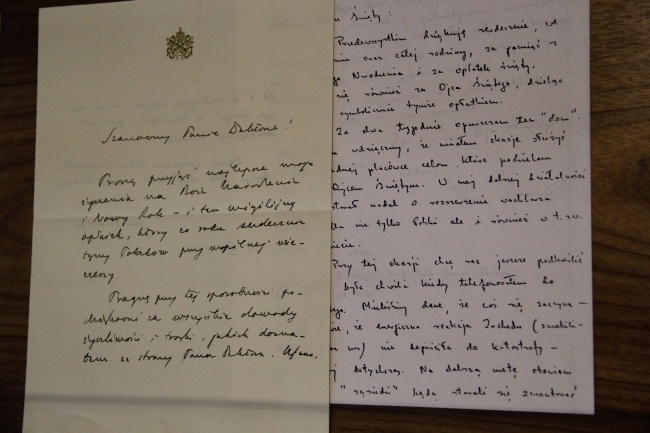 Szanowny Panie Doktorze!
Proszę przyjąć najlepsze moje
życzenia na Boże Narodzenie
i Nowy Rok – i ten wigilijny
opłatek, który co roku serdecznie
łączy Polaków przy wspólnej wie-
czerzy
Pragnę przy tej sposobności po-
dziękować za wszystkie dowody
życzliwości i troski, jakich dozna-
łem ze strony Pana Doktora. Ufam,
Święty:
Przedewszystkim dziękuję serdecznie, we
oraz całej rodziny, za pamięć z
Narodzenia i za opłatek święty.
się również za Ojca Świętego, dzieląc
symbolicznie tymże opłatkiem.
Za dwa tygodnie opuszczam ten "dom".
wdzięczny, że miałem okazję służyć
placówce celom, które podzielam
Ojcem Świętym. W mej dalszej działalności
nadal o rozszerzenie wachlarza
nie tylko Polski ale i również w t.zw.
świecie.
Przy tej okazji chcę raz jeszcze podkreślić
była chwila kiedy telefonowałem do
Mieliśmy dane, że coś się zaczyna –
że energiczna reakcja Zachodu
nie dopuściła do katastrofy –
dotyczącą. Na dalszą metę obawiam
"sąsiedzi" będą starali się zmontować